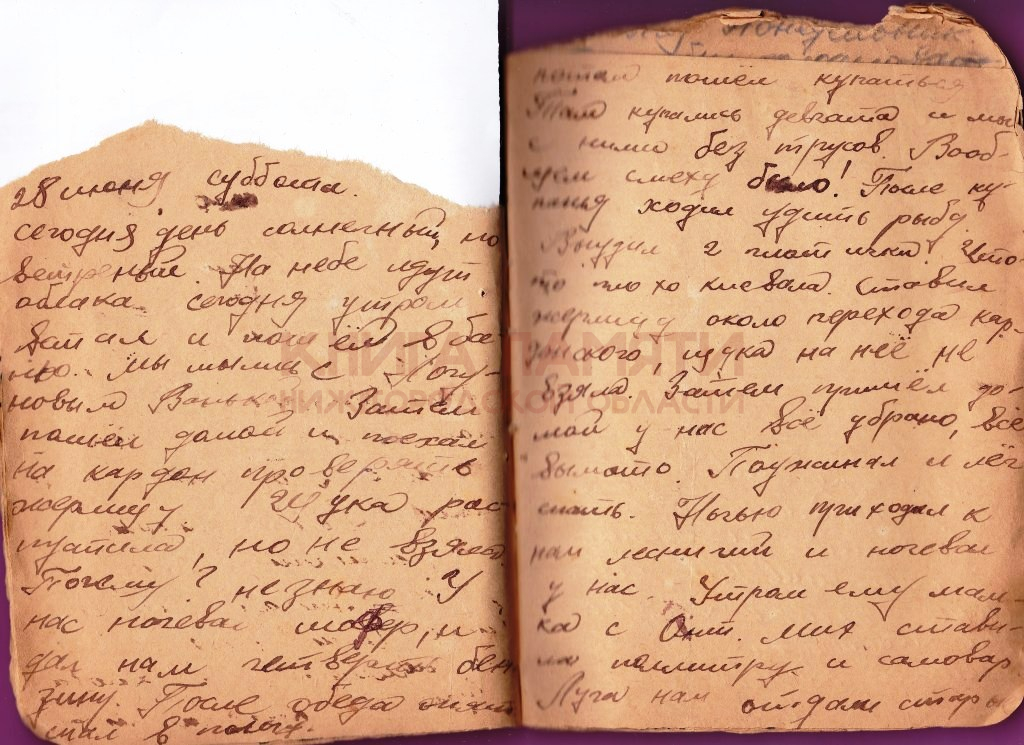 28 июня суббота.
сегодня день солнечный, но
ветреный. На небе идут
облака. сегодня утром
встал и пошёл в ба-
ню. Мы мылись с
новым Ванькой. Затем
пошёл домой и поехал
на кардон проверять
жерлицу. Щука рас-
пустила, но не взяла.
Почему? не знаю. У
нас ночевал шофер, и
дал нам четверть бен
зину. После обеда
спал в
понедельник
потом пошёл купаться
Там купались девчата и мы
с ними без трусов. Вооб-
щем смеху было! После ку-
панья ходил удить рыбу.
Выудил 2 Што-
то плохо клевала. Ставил
жерлицу около перехода кар-
донского, щука на неё не
взяла. Затем пришёл до-
мой у нас всё убрано, всё
вымыто. Поужинал и лёг
спать. Ночью приходил к
нам лесничий и ночевал
у нас. Утром ему мам-
ка с Ант. Мих стави-
ли поллитру и самовар
Луга нам отдали стары
КНИГА ПАМЯТИ
НИЖЕГОРОДСКОЙ ОБЛАСТИ